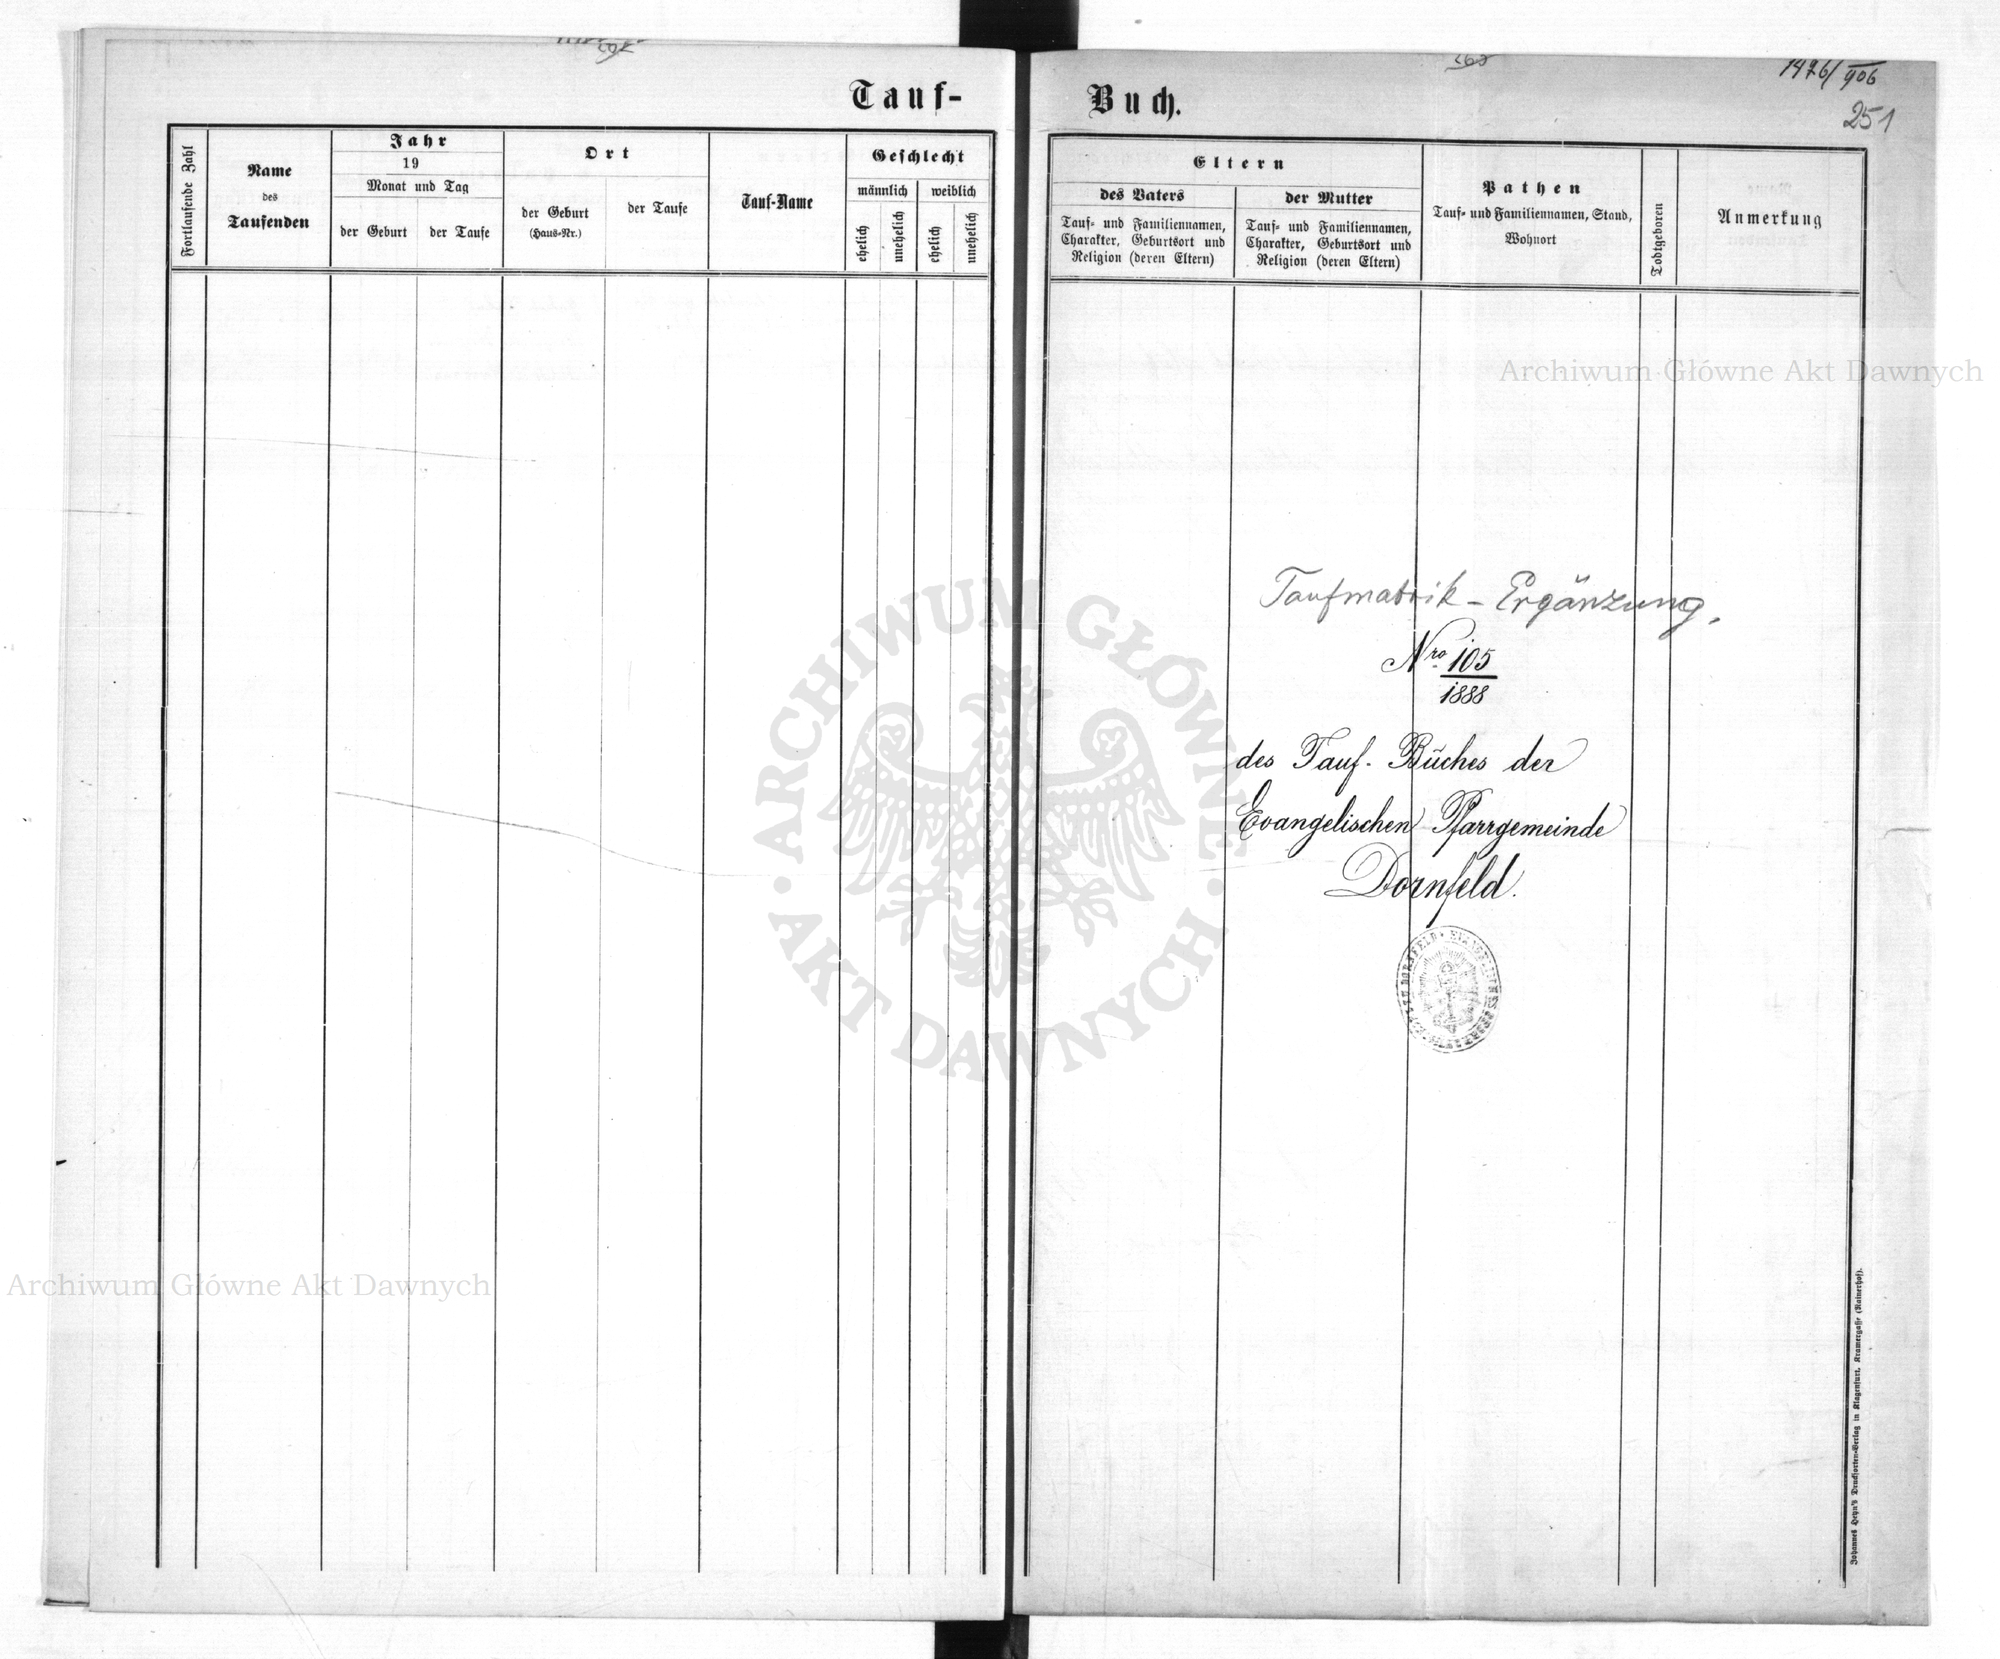 Tauf-
Fortlaufende Zahl
Name
des
Taufenden
Jahr
19
Monat und Tag
der Geburt
der Taufe
Ort
der Geburt
(Haus-Nr.)
der Taufe
Tauf-Name
Geschlecht
männlich
weiblich
ehelich
unehelich
ehelich
unehelich
Buch.
1476/906
251
Eltern
des Vaters
Tauf- und Familiennamen,
Charakter, Geburtsort und
Religion (deren Eltern)
der Mutter
Tauf- und Familiennamen,
Charakter, Geburtsort und
Religion (deren Eltern)
Pathen
Tauf- und Familiennamen, Stand,
Wohnort
Todtgeboren
Anmerkung
Taufmatrik - Ergänzung.
Nro 105
1888
des Tauf-Buches der
Evangelischen Pfarrgemeinde
Dornfeld.
Johannes Heyn's Drucksorten-Verlag in Klagenfurt, Kramergasse (Rainerhof).
Archiwum Główne Akt Dawnych
Archiwum Główne Akt Dawnych
ARCHIWUM GŁÓWNE
AKT DAWNYCH